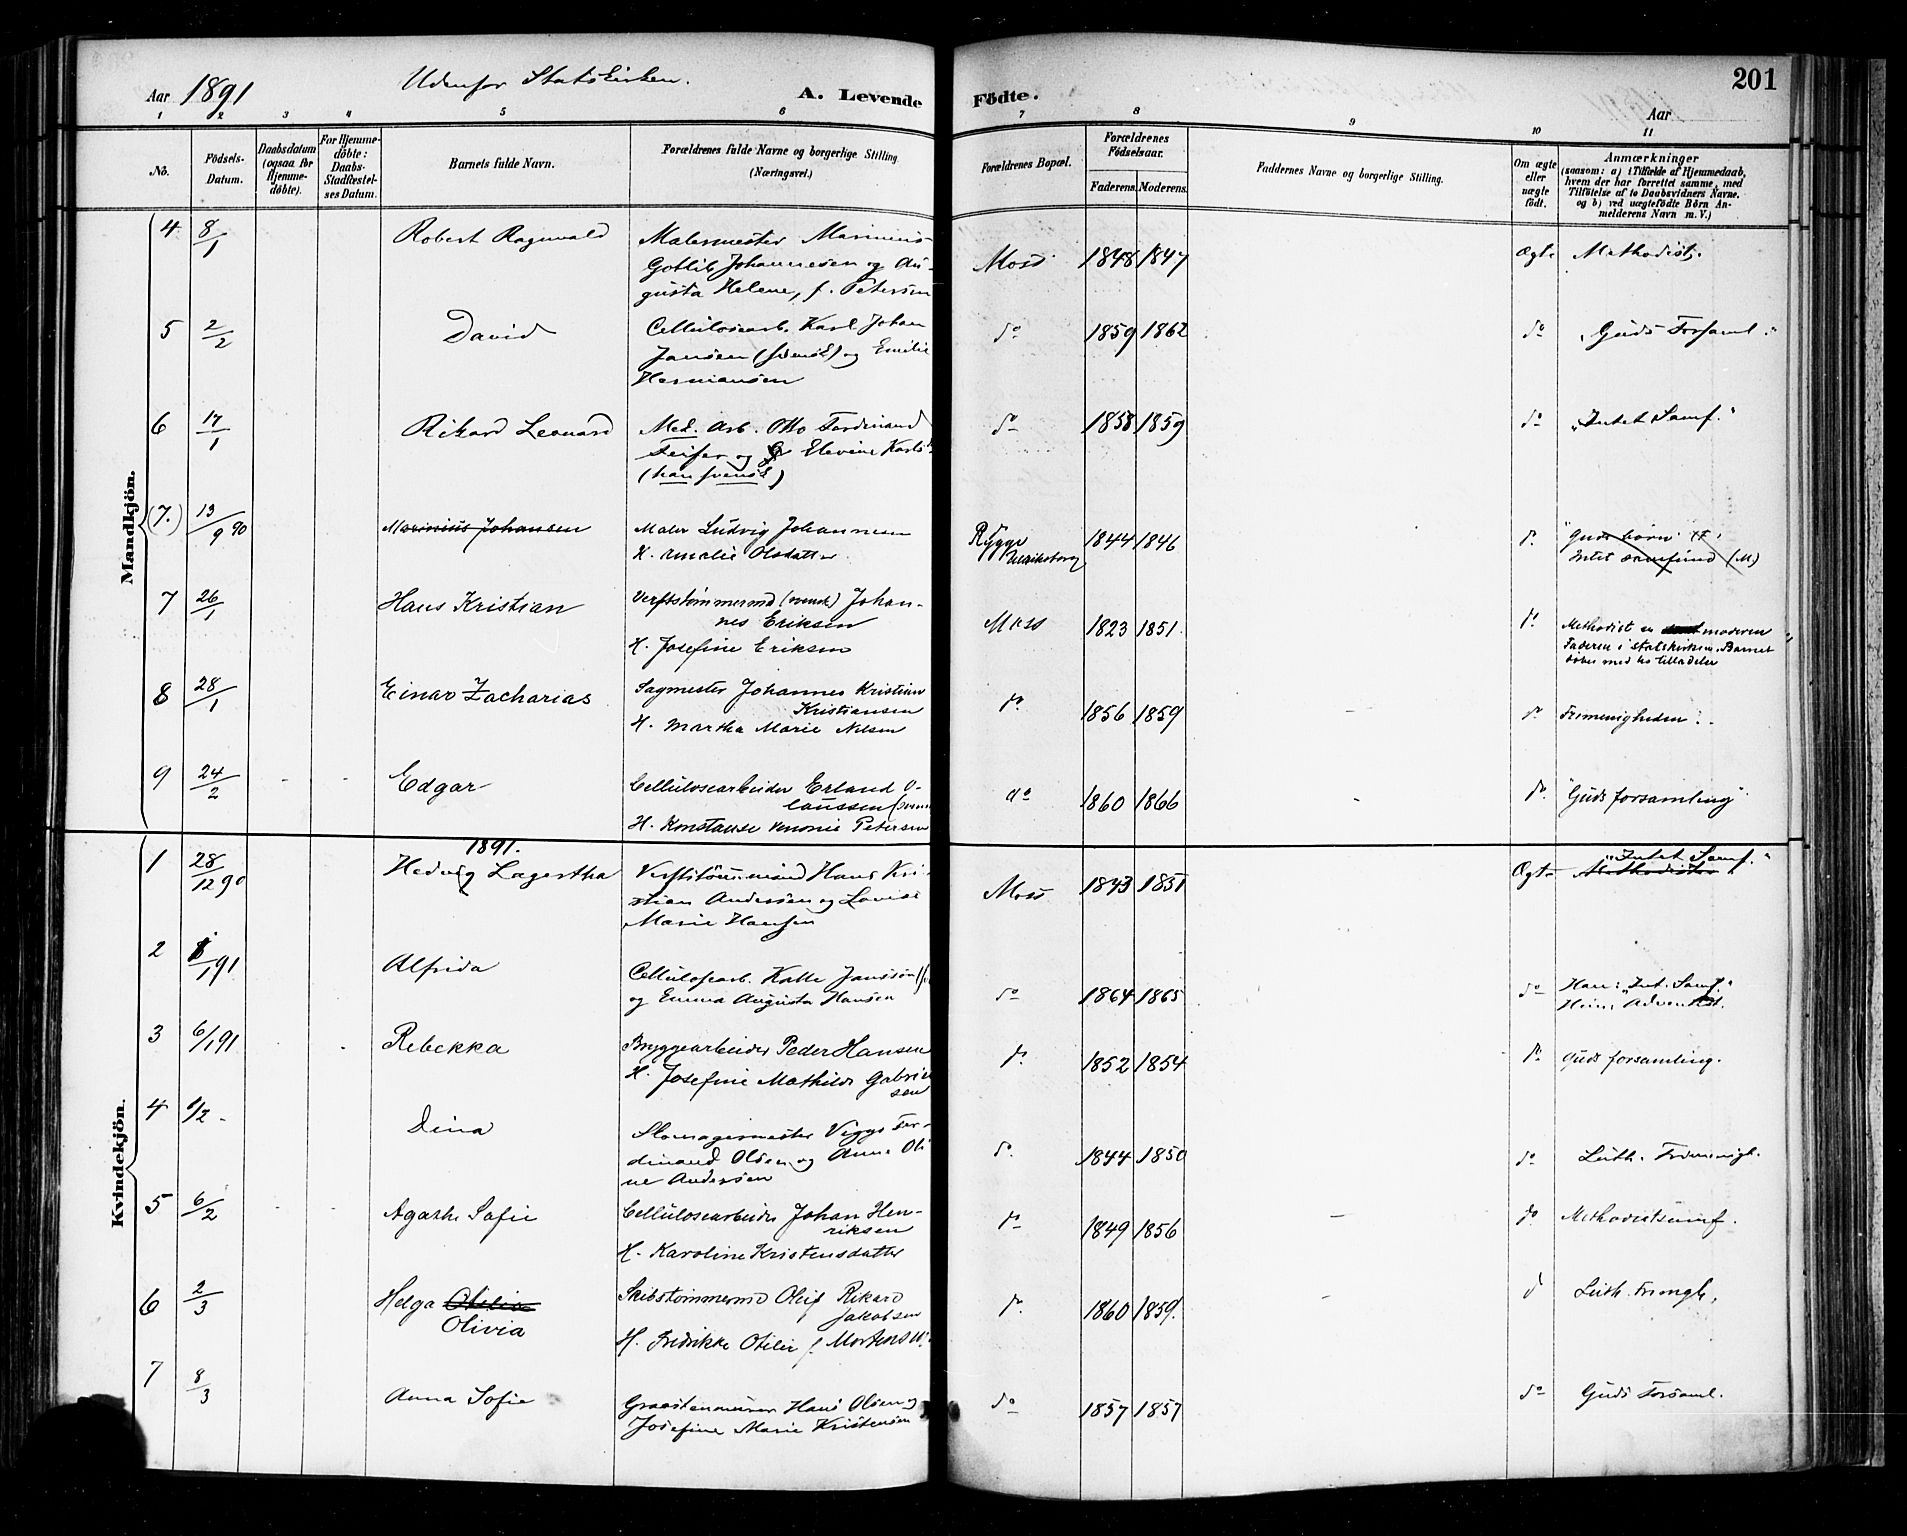 Aar 1891 Udenfor Statskirken. A. Levende Födte. Aar 201
1 2 3 4 5 6 7 8 9 10 11
No.
Födsels-Datum.
Daabsdatum (ogsaa for Hjemme-döbte).
For Hjemme-döbte: Daabs-Stadfæstel-ses Datum.
Barnets fulde Navn.
Forældrenes fulde Navne og borgerlige Stilling. (Næringsvei.)
Forældrenes Bopæl.
Forældrenes Födselsaar.
Faderens. Moderens.
Faddernes Navne og borgerlige Stilling.
Om ægte eller uægte födt.
Anmærkninger
(saasom: a) i Tilfælde af Hjemmedaab,
hvem der har forrettet samme, med
Tilföielse af to Daabsvidners Navne.
og b) ved uægtefödte Börn An-
melderens Navn m. V.)
Mandkjön.
4 8/1 Robert Ragnvald Malermester Marinius
Gotlib Johannesen og Au-
gusta Helene, f. Petersen
Moss 1848 1847 Ægte Methodist.
5 2/2 David Cellulosearb. Karl Johan
Jansen (svensk) og Emilie
Hermansen
do 1859 1862 do "Guds Forsaml."
6 17/1 Rikard Leonard Med. Arb. Otto Ferdinand
og Elevine Karls
(han svensk)
do 1858 1859 do "Intet Samf."
(7.) 13/9 90 Marinius Johansen Maler Ludvig Johannesen
H. Amalie Olsdatter
Rygge
1844 1846 do "Guds börn"
Intet Samfund (M)
7 26/1 Hans Kristian Verftstömmermd (svensk) Johan-
nes Eriksen
H. Josefine Eriksen
Moss 1823 1851 do Methodist er moderen
Faderen i statskirken. Barnet
döbes med hs tilladelse
8 28/1 Einar Zacharias Sagmester Johannes Kristian
Kristiansen
H. Martha Marie Nilsen
do 1856 1859 do Frimenigheden.
9 24/2 Edgar Cellulosearbeider Erland O-
laussen
H. Konstanse Petersen
do 1860 1866 do "Guds forsamling"
Kvindekjön.
1891.
1 28/12 90 Hedvig Lagertha Verftstömmermand Hans Kri-
stian Andersen og Lovise
Marie Hansen
Moss 1843 1851 Ægte Methodister "Intet Samf."
2 8/1 91 Alfrida Cellulosearb. Kalle Janssön
og Emma Augusta Hansen
do 1864 1865 do Han: "Int. Samf."
Hun: Adventist.
3 6/1 91 Rebekka Bryggearbeider Peder Hansen
H. Josefine Mathilde Gabriel
sen
do 1852 1854 do Guds forsamling.
4 1/2 - Dina Skomagermester Viggo Fer-
dinand Olsen og Anne Oli
ne Andersen
do 1844 1850 do Luth. Frimenigh.
5 6/2 Agathe Sofie Cellulosearbeider Johan Hen-
riksen
H. Karoline Kristensdatter
do 1849 1856 do Methodistsamf.
6 2/3 Helga Otilie
Olivia
Skibstömmermd Oluf Rikard
Jakobsen
H. Fredrikke Otilie f Mortensen
do 1860 1859. do Luth. Frimgh.
7 8/3 Anna Sofie Graastensmurer Hans Olsen og
Josefine Marie Kristensen
do 1857 1857 do Guds Forsaml.